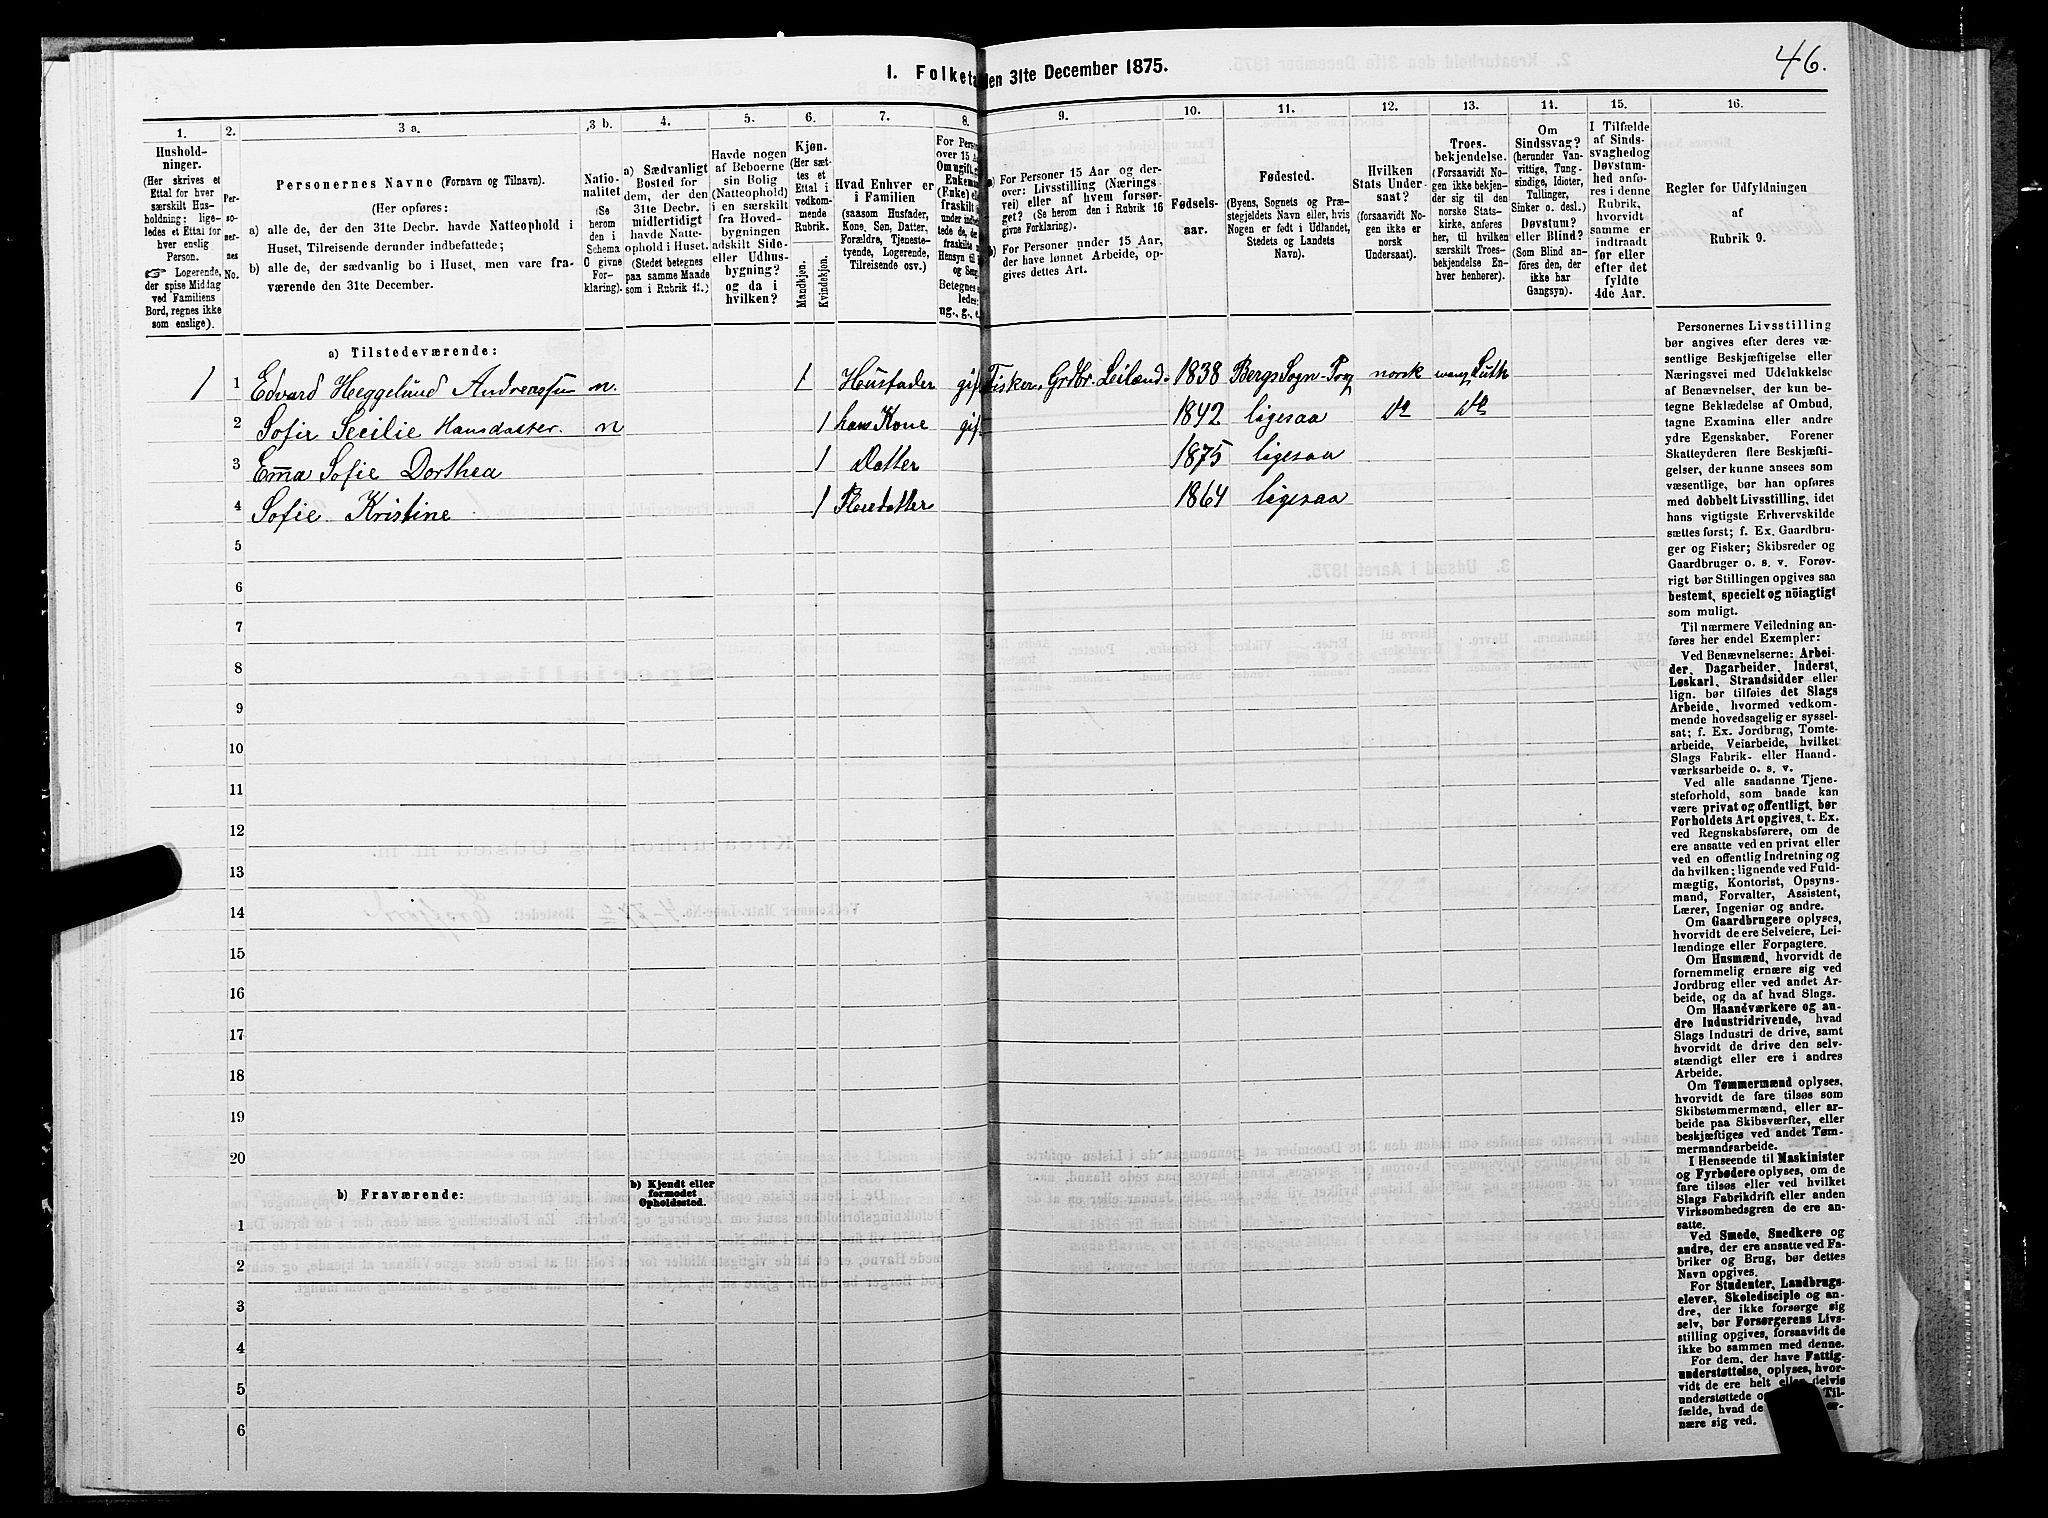 46.
1. Folketæ den 31te December 1875.
1. 2. 3 a. 3 b. 4. 5. 6. 7. 8. 9. 10. 11. 12. 13. 14. 15. 16.
Husholdninger.
(Her skrives et
Ettal for hver
særskilt Husholdning:
ligeledes et Ettal for
hver enslig
Person.
Logerende,
der spise Middag
ved Familiens
Bord, regnes ikke
som enslige).
Personernes No.
Personernes Navne (Fornavn og Tilnavn).
(Her opføres:
a) alle de, der den 31te Decbr. havde Natteophold i
Huset, Tilreisende derunder indbefattede;
b) alle de, der sædvanlig bo i Huset, men vare fraværende
den 31te December.
Nationalitet
(Se
herom
den i
Schema
C givne
Forklaring).
a) Sædvanligt
Bosted for
dem, der den
31te Decbr.
midlertidigt
havde Natteophold
i Huset.
(Stedet betegnes
paa samme Maade
som i Rubrik 11.)
Havde nogen
af Beboerne
sin Bolig
(Natteophold)
i en særskilt
fra Hovedbygningen
adskilt Side-
eller Udhusbygning?
og da i
hvilken?
Kjøn.
(Her sættes
et
Ettal i
vedkommende
Rubrik.
Mandkjøn.
Kvindekjøn.
Hvad Enhver er
i Familien
(saasom Husfader,
Kone, Søn, Datter,
Forældre, Tjenestetyende,
Logerende,
Tilreisende osv.)
a) For Personer 15 Aar og derover:
Livsstilling (Næringsvei)
eller af hvem forsørget?
(Se herom den i Rubrik 16
givne Forklaring).
b) For Personer under 15 Aar,
der have lønnet Arbeide, opgives
dettes Art.
Fødselsaar.
Fødested.
(Byens, Sognets og Præstegjeldets
Navn eller, hvis
Nogen er født i Udlandet,
Stedets og Landets
Navn).
Hvilken
Stats Undersaat?
(forsaavidt Nogen
ikke er
norsk
Undersaat).
Troesbekjendelse.
(Forsaavidt Nogen
ikke bekjender
sig til den
norske Statskirke,
anføres
her, til hvilken
særskilt Troesbekjendelse
Enhver
henhører).
Om
Sindssvag?
(herunder Vanvittige,
Tungsindige,
Idioter,
Tullinger,
Sinker o. desl.)
Døvstum?
eller Blind?
(Som Blind anføres
den, der
ikke har
Gangsyn).
I Tilfælde
af Sindssvaghed
og
Døvstumhed
anføres
i denne
Rubrik,
hvorvidt
samme er
indtraadt
før eller
efter det
fyldte
4de Aar.
Regler for Udfyldningen
af
Rubrik 9.
a) Tilstedeværende:
1 1 Edvard Heggelund Andreassen n. 1 Husfader gif Fisker, Grdbr. Leilænd. 1838 Bergs Sogn norsk Luth
2 Sofie Secilie Hansdatter. n 1 hans Kone gif 1842 ligesaa do do
3 Ema Sofie Dorthea 1 Datter 1875 ligesaa
4 Sofie Kristine 1 Pleiedatter 1864 ligesaa
5
6
7
8
9
10
11
12
13
14
15
16
17
18
19
20
b) Fraværende:
b) Kjendt eller
formodet
Opholdssted.
1
2
3
4
5
6
Personernes Livsstilling
bør angives efter deres væsentlige
Beskjæftigelse eller
Næringsvei med Udelukkelse
af Benævnelser, der kun betegne
Beklædelse af Ombud,
tagne Examina eller andre
ydre Egenskaber. Forener
Skatteyderen flere Beskjæftigelser,
der kunne ansees som
væsentlige, bør han opføres
med dobbelt Livsstilling, idet
hans vigtigste Erhvervskilde
sættes først; f. Ex. Gaardbruger
og Fisker; Skibsreder og
Gaardbruger o. s. v. Forøvrigt
bør Stillingen opgives saa
bestemt, specielt og nöiagtigt
som muligt.
Til nærmere Veiledning anføres
her endel Exempler:
Ved Benævnelserne: Arbeider,
Dagarbeider, Inderst,
Løskarl, Strandsidder eller
lign. bør tilføies det Slags
Arbeide, hvormed vedkommende
hovedsagelig er sysselsat;
f. Ex. Jordbrug, Tomtearbeide,
Veiarbeide, hvilket
Slags Fabrik- eller Haandværksarbeide
o. s. v.
Ved alle saadanne Tjenesteforhold,
som baade kan
være privat og offentligt, bør
Forholdets Art opgives, t. Ex.
ved Regnskabsførere, om de
ere ansatte ved en privat eller
ved en offentlig Indretning og
da hvilken; lignende ved Fuldmægtig,
Kontorist, Opsynsmand,
Forvalter, Assistent,
Lærer, Ingeniør og andre.
Om Gaardbrugere oplyses,
hvorvidt de ere Selveiere, Leilændinge
eller Forpagtere.
Om Husmænd, hvorvidt de
fornemmelig ernære sig ved
Jordbrug eller ved andet Arbeide,
og da af hvad Slags.
Om Haandværkere og andre
Industridrivende, hvad
Slags Industri de drive, samt
hvorvidt de drive den selvstændigt
eller ere i andres
Arbeide.
Om Tømmermænd oplyses,
hvorvidt de fare tilsøs som
Skibstømmermænd, eller arbeide
paa Skibsværfter, eller
beskjæftiges ved andet Tømmermandsarbeide.
I Henseende til Maskinister
og Fyrbødere oplyses, om de
fare tilsøs eller ved hvilket
Slags Fabrikdrift eller anden
Virksomhedsgren de ere ansatte.
Ved Smede, Snedkere og
andre, der ere ansatte ved Fabriker
og Brug, bør dettes
Navn opgives.
For Studenter, Landbrugselever,
Skoledisciple og andre,
der ikke forsørge sig
selv, bør Forsørgerens Livsstilling
opgives, forsaavidt de
ikke bo sammen med denne.
For dem, der have Fattigunderstøttelse,
oplyses, hvorvidt
de ere helt eller delvis
understøttede